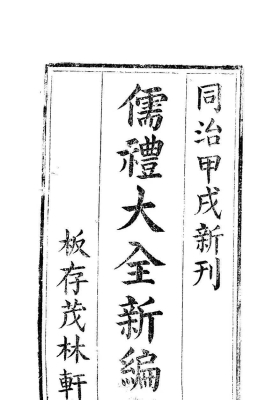 同治甲戌新刊
儒禮大全新編
板存茂林軒